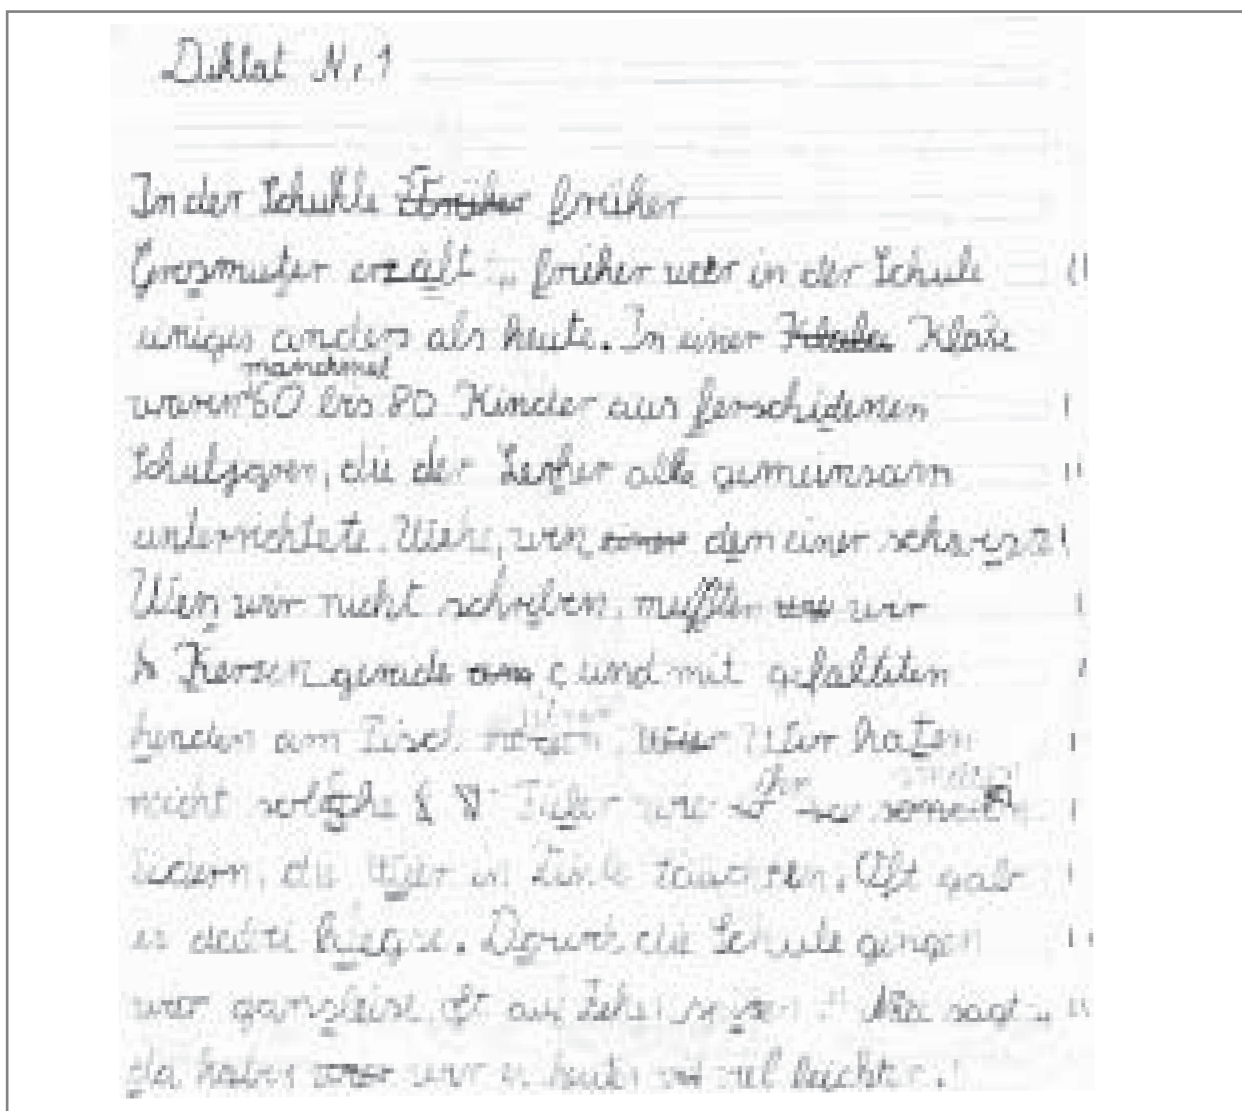 Diktat Nr 1
In der Schuhle früher
Grosmuter erzält: „früher war in der Schule
einiges anders als heute. In einer Klase
waren manchmal 60 bis 80 Kinder aus ferschidenen
die der Lerher alle gemeinsam
unterrichtete. Wehe, wen den einer
Wen wir nicht schriben, mußten wir
Kerzen gerade und mit gefalteten
henden am Tisch Wir haten
nicht solche wie
federn, die wier in Tinte tauchten. Oft gab
es dabei Durch die Schule gingen
wir ganz leise, oft auf sagt „
da haben wir es heute viel leichter.